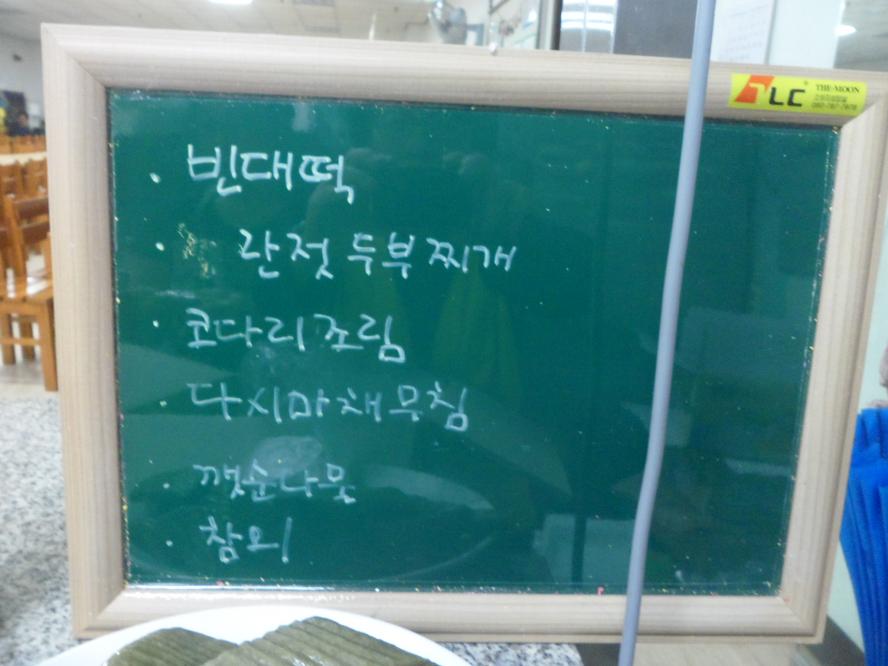 TLC THE-MOON
· 빈대떡
· 란젓두부찌개
· 코다리조림
· 다시마채무침
· 깻순나물
· 참외